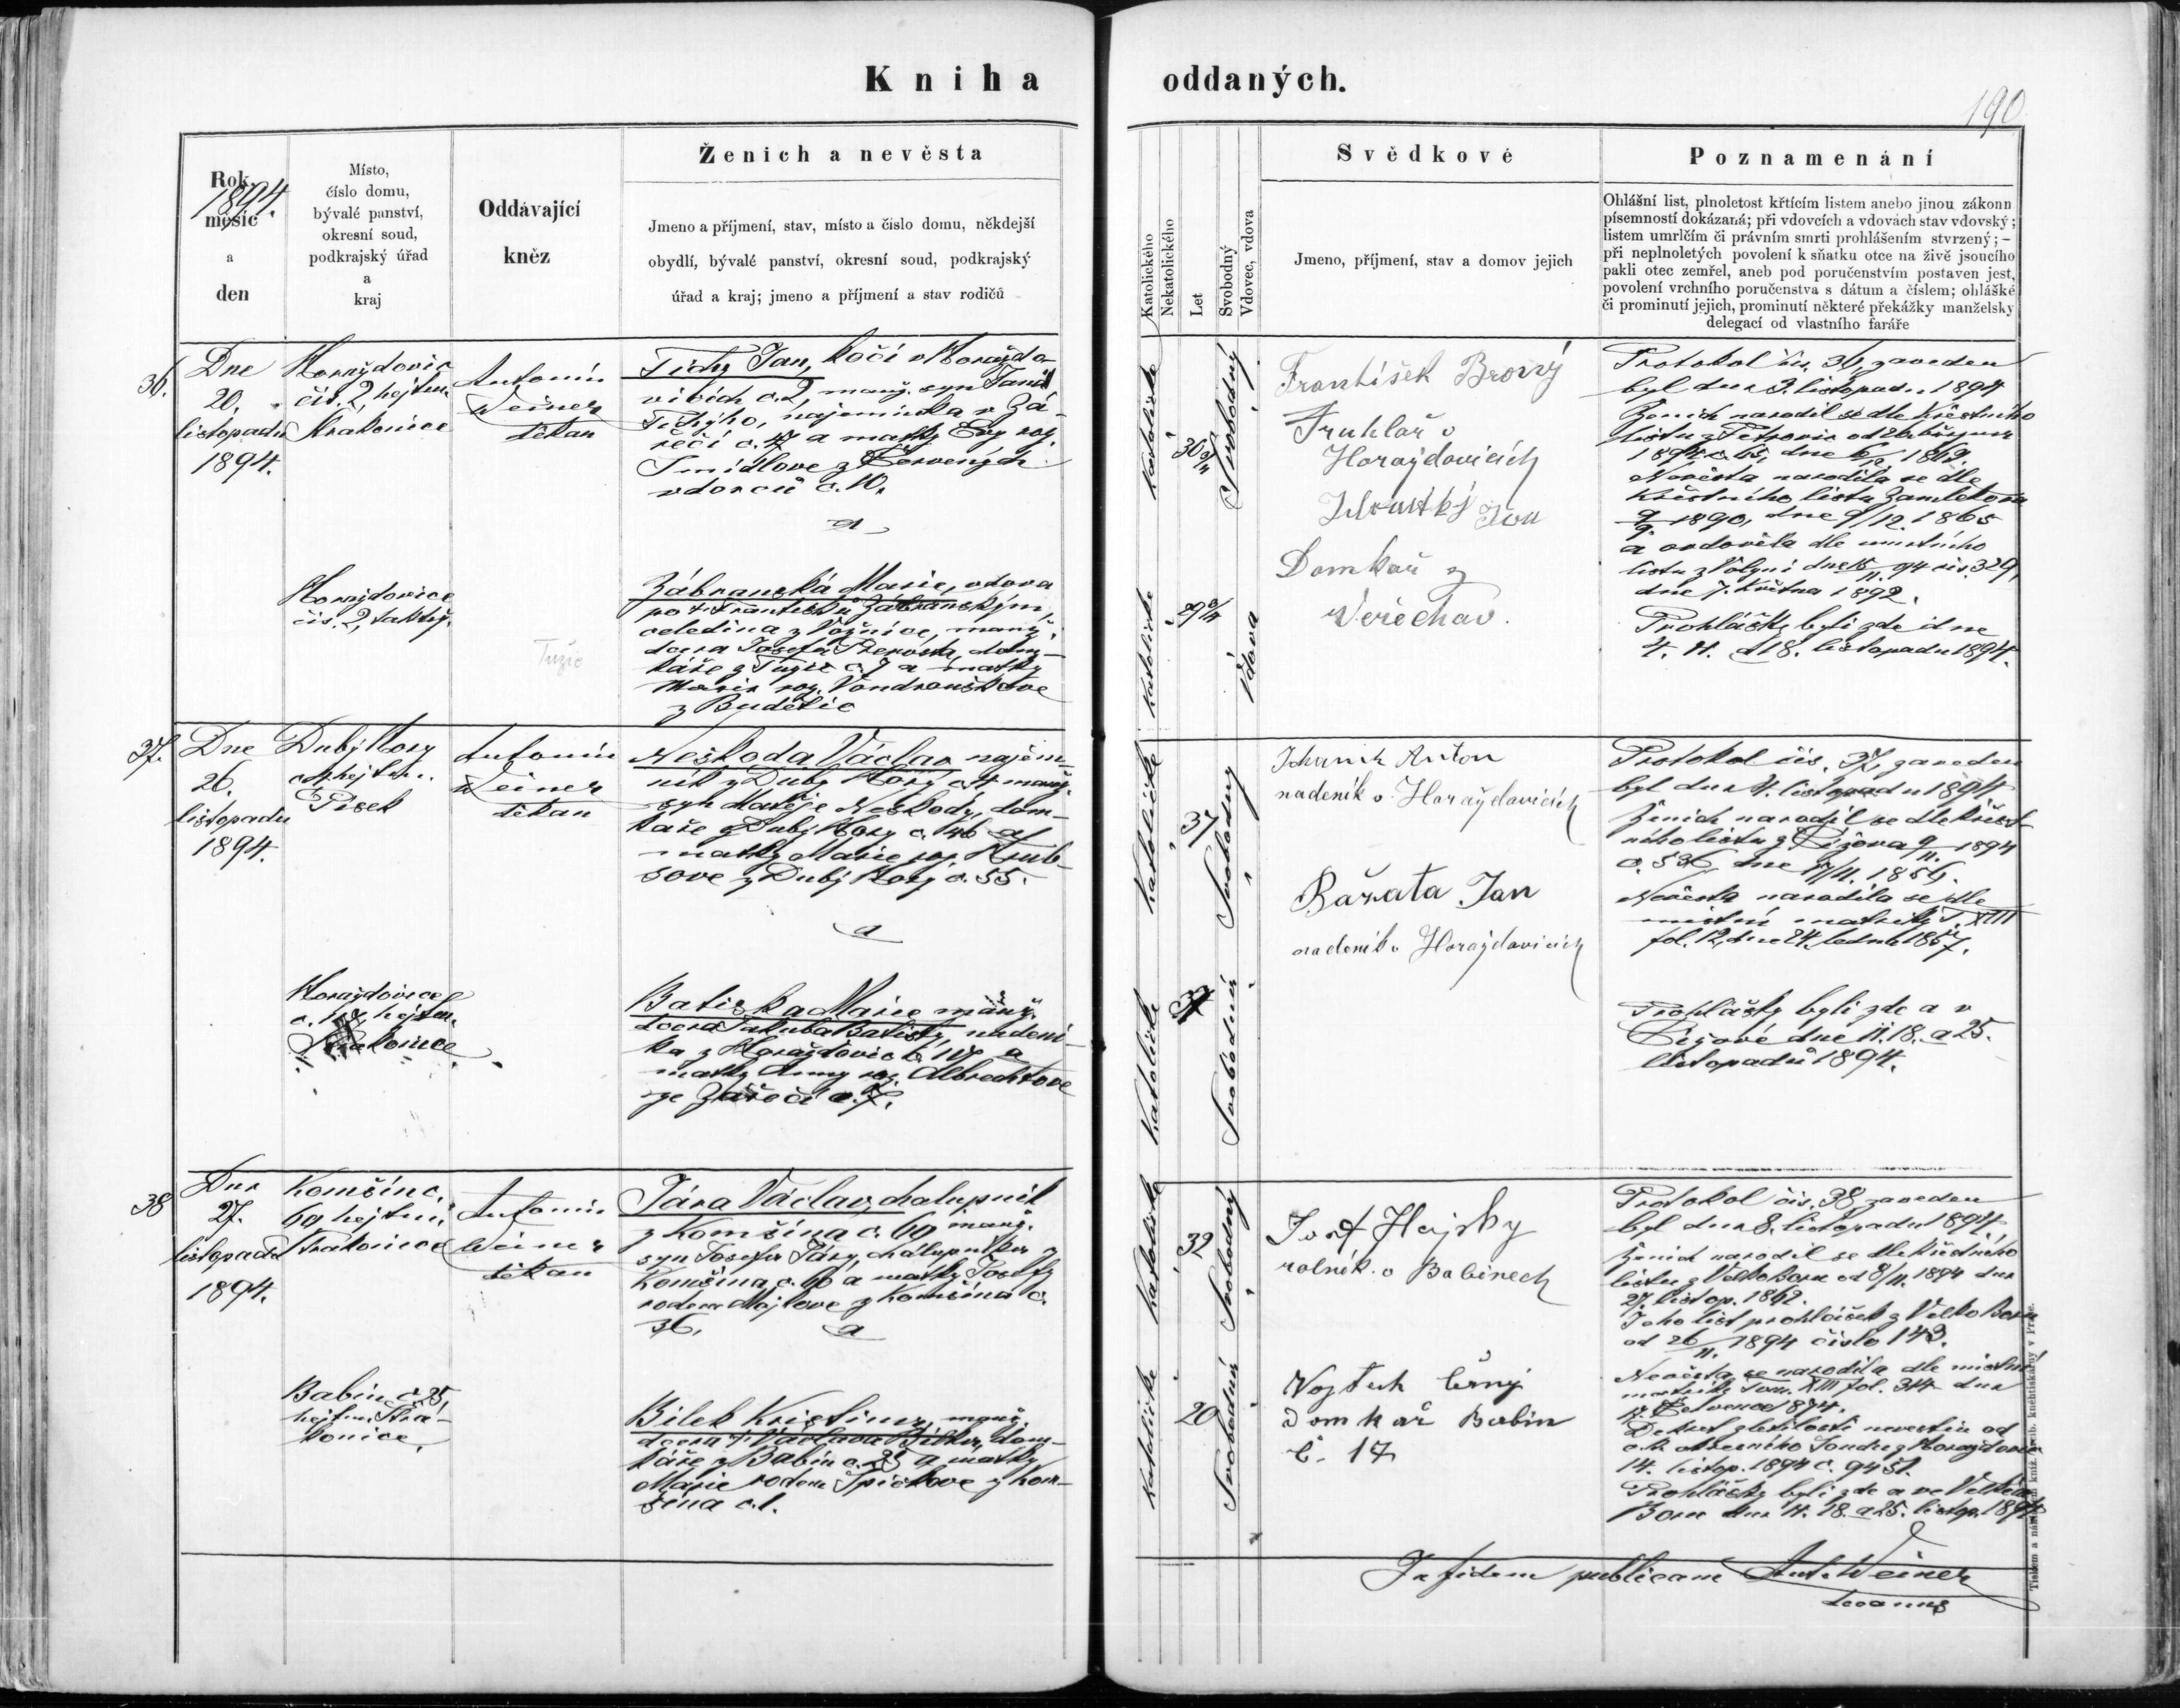 Kniha oddaných.
190
Rok,
1894.
měsíc
a
den
Místo,
číslo domu,
bývalé panství,
okresní soud,
podkrajský úřad
a
kraj
Oddávající
kněz
Ženich a nevěsta
Jmeno a příjmení, stav, místo a číslo domu, někdejší
obydlí, bývalé panství, okresní soud, podkrajský
úřad a kraj; jmeno a příjmení a stav rodičů
Katolického
Nekatolického
Let
Svobodný
Vdovec, vdova
Svědkové
Jmeno, příjmení, stav a domov jejich
Poznamenání
Ohlášní list, plnoletost křtícím listem anebo jinou zákonn
písemností dokázaná; při vdovcích a vdovách stav vdovský;
listem umrlčím či právním smrti prohlášením stvrzený; –
při neplnoletých povolení k sňatku otce na živě jsoucího
pakli otec zemřel, aneb pod poručenstvím postaven jest,
povolení vrchního poručenstva s dátum a číslem; ohlášké
či prominutí jejich, prominutí některé překážky manželsky
delegací od vlastního faráře
36.
Dne
20.
listopadu
1894.
Horažďovic
čís. 2, hejtm.
Strakonice
Antonín
Weiner
děkan
Tichý Jan, kočí v Horažďo-
vicích č. 2, manž. syn
Tichého, nájemníka v Zá-
řečí č. 17 a matky Evy roz.
Šmídlove z Červených
dvorců č. 10.
a
Horažďovice
čís. 2, taktéž.
Tužic
Zábranská Marie, vdova
po † Františku Zábranským,
čeledína z Vožnice, manž.
dcera Josefa
káře z Tužic č. 7 a matky
Marie roz. Vondrouškove
z Budětic
katolické
30
Svobodný
katolické
29
Vdova
František Brožný
Truhlař v
Horažďovicích
Jan
Domkař z
Veřechov.
Protokol čís. 36, zaveden
byl dne 3. listopadu 1894
Ženich narodil se dle křestního
listu z Petrovic od
dne
Nevěsta narodila se dle
křestního listu
1890, dne 9/12. 1865
a ovdověla dle umrtního
listu z Volyni dne čís. 329,
dne 7. Května 1892.
Prohlášky byli zde dne
4. 11. a 18. listopadu 1894.
37.
Dne
26.
listopadu
1894.
Dubý Hory
hejtm.
Písek
Antonín
Weiner
děkan
Neškoda Václav nájem-
ník z Dubý Hory č. 4, manž.
syn Matěje Neškody, dom-
káře z Dubý Hory č. 46 a
matky Marie roz.
sove z Dubý Hory č. 55.
a
Horažďovice
hejtm.
Strakonice
Batiska Marie manž.
dcera Jakuba Batisty, nádení-
ka z Horažďovic č. 117 a
matky Anny roz. Albrechtove
ze Zářečí č. 7.
katolické
37
Svobodný
katolické
37
Svobodná
Anton
nadeník v Horažďovicích
Bárata Jan
nadeník v Horažďovicích
Protokol čís. 37, zaveden
byl dne 4. listopadu 1894
Ženich narodil se dle křest-
ního listu z Čížova 9/11. 1894
č. 536, dne
Nevěsta narodila se dle
místní matriky T. XIII
fol. 12, dne 24. ledna 1857.
Prohlášky byli zde a v
Čížové dne 11. 18. a 25.
listopadu 1894.
38
Dne
27.
listopadu
1894.
Komšín č.
60, hejtm.
Strakonice
Antonín
Weiner
děkan
Pára Václav, chalupník
z Komšína č. 60 manž.
syn Josefa Páry, chalupníka z
Komšína č. 60 a matky Josefy
rodem Majlove z Komšína č.
36.
a
Babín č. 25,
hejtm. Stra-
konice,
Bilek Kristina, manž.
dcera † Václava Bílka, dom-
káře z Babín č. 25 a matky
Marie rodem Špičkove z Kom-
šína č. 1.
katolické
32
Svobodný
katolické
20
Svobodná
Josef Hajsky
rolník v Babinech
Vojtěch Černý
domkař Babin
č. 17
Protokol čís. 38, zaveden
byl dne 8. listopadu 1894.
Ženich narodil se dle křestního
listu z Velko Boru od 8/11. 1894 dne
27. listop. 1862.
Jeho list prohlášek z Velko Boru
od 26/11. 1894 číslo 143.
Nevěsta se narodila dle místní
matriky Tom. XIII fol. 314 dne
Července 1874.
Dekret zletilosti nevěstin od
c. k. okresního Soudu z Horažďovic
14. listop. 1894 č. 9451.
Prohlášky byli zde a ve Velkém
Boru dne 11. 18. a 25. listop. 1894
In fidem publicam Ant. Weiner
decanus